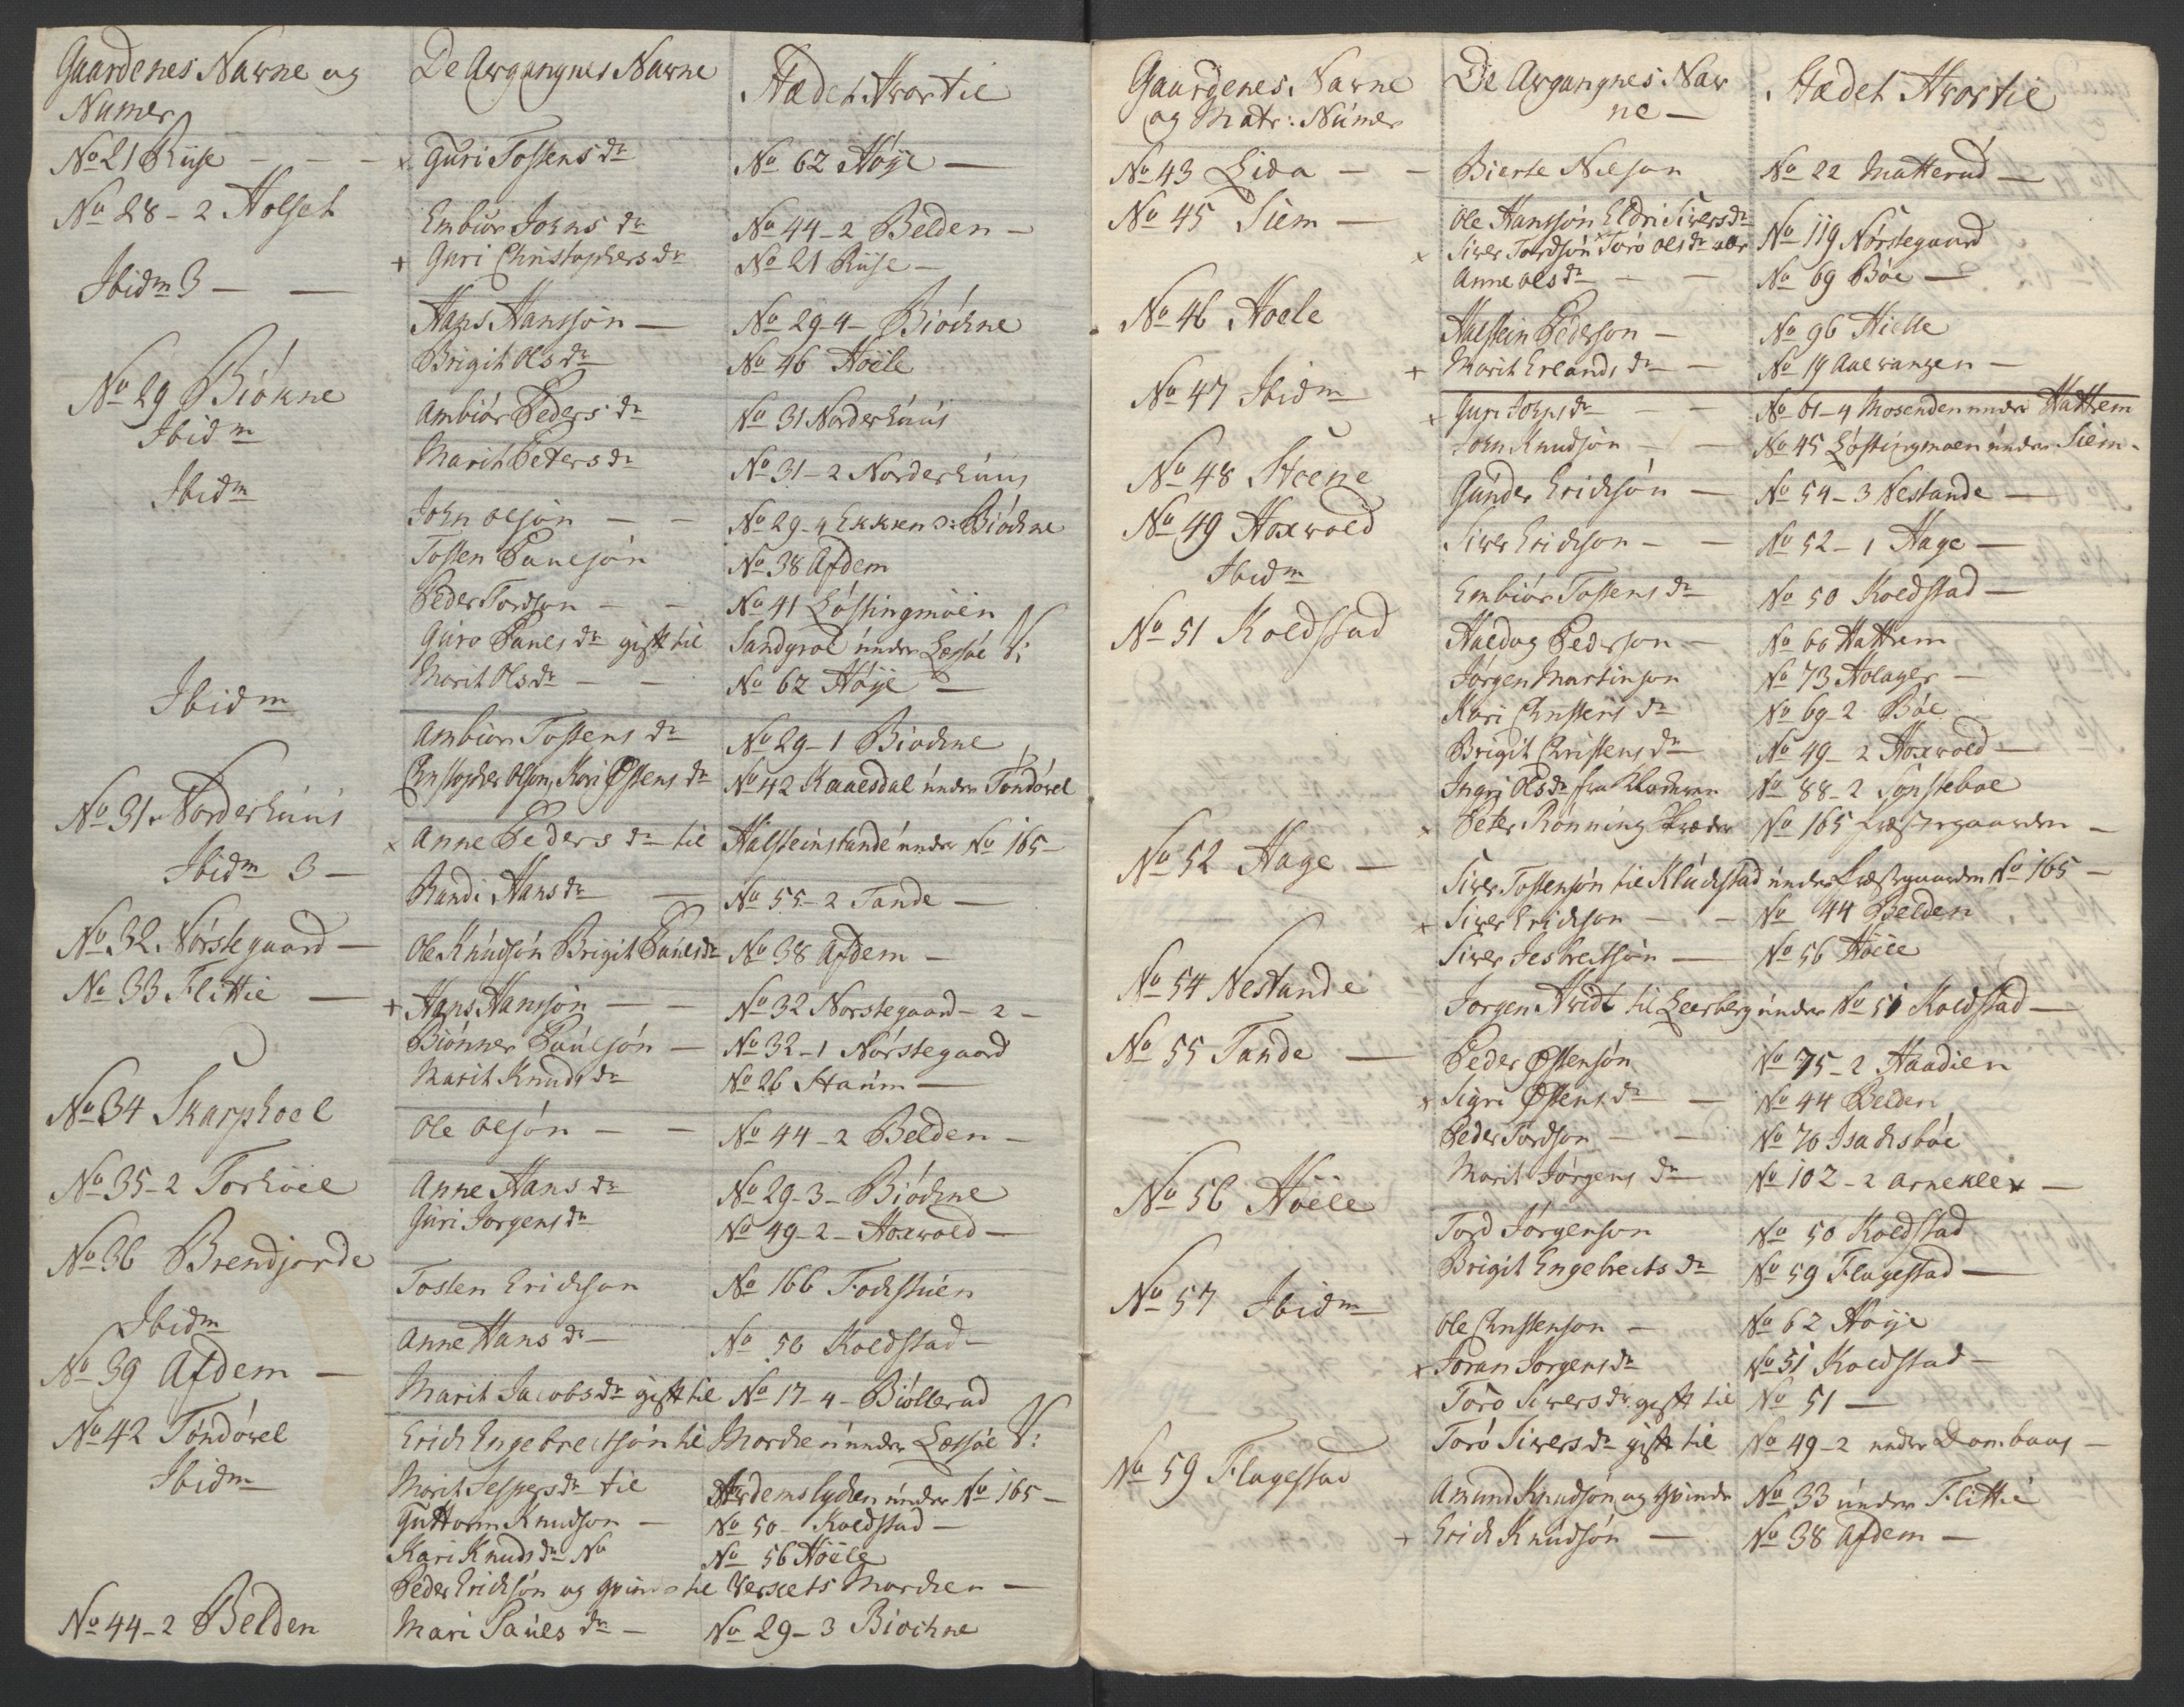 Gaardenes Navne og | De Avgangnes Navne | Stædet Hvortil
Numer
No 21 Riise — — — | x Guri Tostens dr | No 62 Høÿe —
No 28 - 2 Holset | Embiør Johns dr | No 44 - 2 Belden —
+ Guri Christophers dr | No 21 Riise —
Ibidm 3 — — | Hans Hanssøn — | No 29 - 4 - Biøchne
Brigit Ols dr | No 46 Hoële
No 29 Biøkne | Ambiør Peders dr | No 31 Norderhuus
Ibidm | Marit Peters dr | No 31 - 2 Norderhuus
Ibidm | John Olsøn — — | No 29 - 4 Ekkren Biøchne
Tosten Paulsøn | No 38 Afdem
Peder Tordson — — | No 41 Løftingmoen
Guro Pauls dr gift til | Sandgroe under Læssøe
Marit Ols dr — — | No 62 Høÿe —
Ibidm | Ambiør Tostens dr | No 29 - 1 Biochne
Christopher Olson, Kari Østens dr | No 42 Kaalsdal under Tøndøvel
No 31 Norderhuus | x Anne Peders dr til | Halsteinstande under No 165 —
Ibidm 3 — | Randi Hans dr — | No 55 - 2 Tande —
No 32 Nørstegaard — | Ole Knudsøn Brigit Pauls dr | No 38 Afdem —
No 33 Flittie — | + Hans Hansøn — — | No 32 Norstegaard - 2 -
Biønner Paulsøn — | No 32 - 1 Nørstegaard
Marit Knuds dr | No 26 Staum —
No 34 Skarphoel | Ole Olsøn — — | No 44 - 2 Belden —
No 35 - 2 Torhoel | Anne Hans dr | No 29 - 3 - Biøchne
Guri Jorgens dr | No 49 - 2 - Hoxwold —
No 36 Brendjorde | Tosten Erichson | No 166 Fochstuen
Ibidm | Anne Hans dr — | No 50 Koldstad —
No 39 Afdem — | Marit Jacobs dr gift til | No 17 - 4 - Biøllerud
No 42 Tøndøvel | Erich Engebrectsøn til | Morchen under Læssøe
Ibidm | Marit Jespers dr til | Afdemslychen under No 165 —
Guttorm Knudson — | No 50 - Koldstad —
Kari Knuds dr No | No 56 Høële
Peder Erichsøn og qvinde til | Morchen —
No 44 - 2 Belden | Mari Paules dr — | No 29 - 3 Biochne
Gaardenes Navne | De Avgangnes Nav | Stædet Hvortil
og Matr: Numer | ne —
No 43 Lida — — | Bierte Nilson | No 22 Matterud —
No 45 Siem — | Ole Hanssøn Eldri Sivers dr
x Siver Tordsøn Torø Ols dr | No 119 Nørstegaard
Anne Ols dr — — | No 69 Böe —
No 46 Hoele | Halstein Pederson — | No 96 Hielle
+ Marit Erlands dr — — | No 19 Aalwangen —
No 47 Ibidm | x Guri Johns dr — — | No 61 - 4 Mosenden under Hattrem
John Knudsøn — — | No 45 Løftingmoen under Siem -
No 48 Steene | Gunder Erichsøn — | No 54 - 3 Nestande —
No 49 Hoxwold | Siver Erichson — — | No 52 - 1 Hage —
Ibidm | Embiør Tostens dr | No 50 Koldstad —
No 51 Koldstad | Haldog Pederson — | No 60 Hattrem
Jørgen Martinson | No 73 Holager —
Kari Christens dr | No 69 - 2 Bøe —
Brigit Christens dr | No 49 - 2 Hoxwold —
Ingri Ols dr fra | No 88 - 2 Tønsteboe
x Peter Rønning Skræder | No 165 Præstegaarden —
No 52 Hage — | Siver Tostensøn til Kluchstad under Præstgaarden No 165 —
x Siver Erichson — — | No 44 Belden
Siver Jesbectsøn — | No 56 Høële
No 54 Nestande | Jørgen Hvidt til Leerberg under No 51 Koldstad —
No 55 Tande — | Peder Østensøn | No 75 - 2 Haadien
x Sigri Østens dr — | No 44 Belden
Peder Tordson — — | No 70 Isachsböe
No 56 Høële | Marit Jørgens dr | No 102 - 2 Arneklev —
Tord Jørgenson | No 50 Koldstad
Brigit Engebrects dr | No 59 Flagestad —
No 57 Ibidm | Ole Christenson — | No 62 Høÿe
x Joran Jorgens dr | No 51 Koldstad —
Torø Sivers dr gift til | No 51 —
No 59 Flagestad | Torø Sivers dr gift til | No 49 - 2 under Dombaas —
Amund Knudsøn og Qvinde | No 33 under Flittie
+ Erich Knudsøn — | No 38 Afdem —